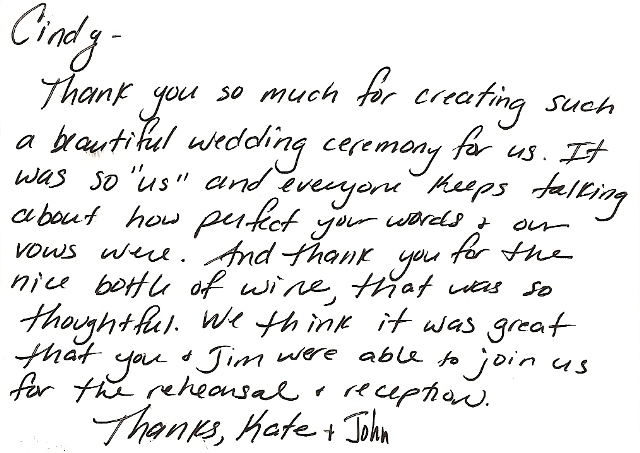 Cindy -
Thank you so much for creating such
a beautiful wedding ceremony for us. It
was so "us" and everyone keeps talking
about how perfect your words + our
vows were. And thank you for the
nice bottle of wine, that was so
thoughtful. We think it was great
that you + Jim were able to join us
for the rehearsal + reception.
Thanks, Kate + John